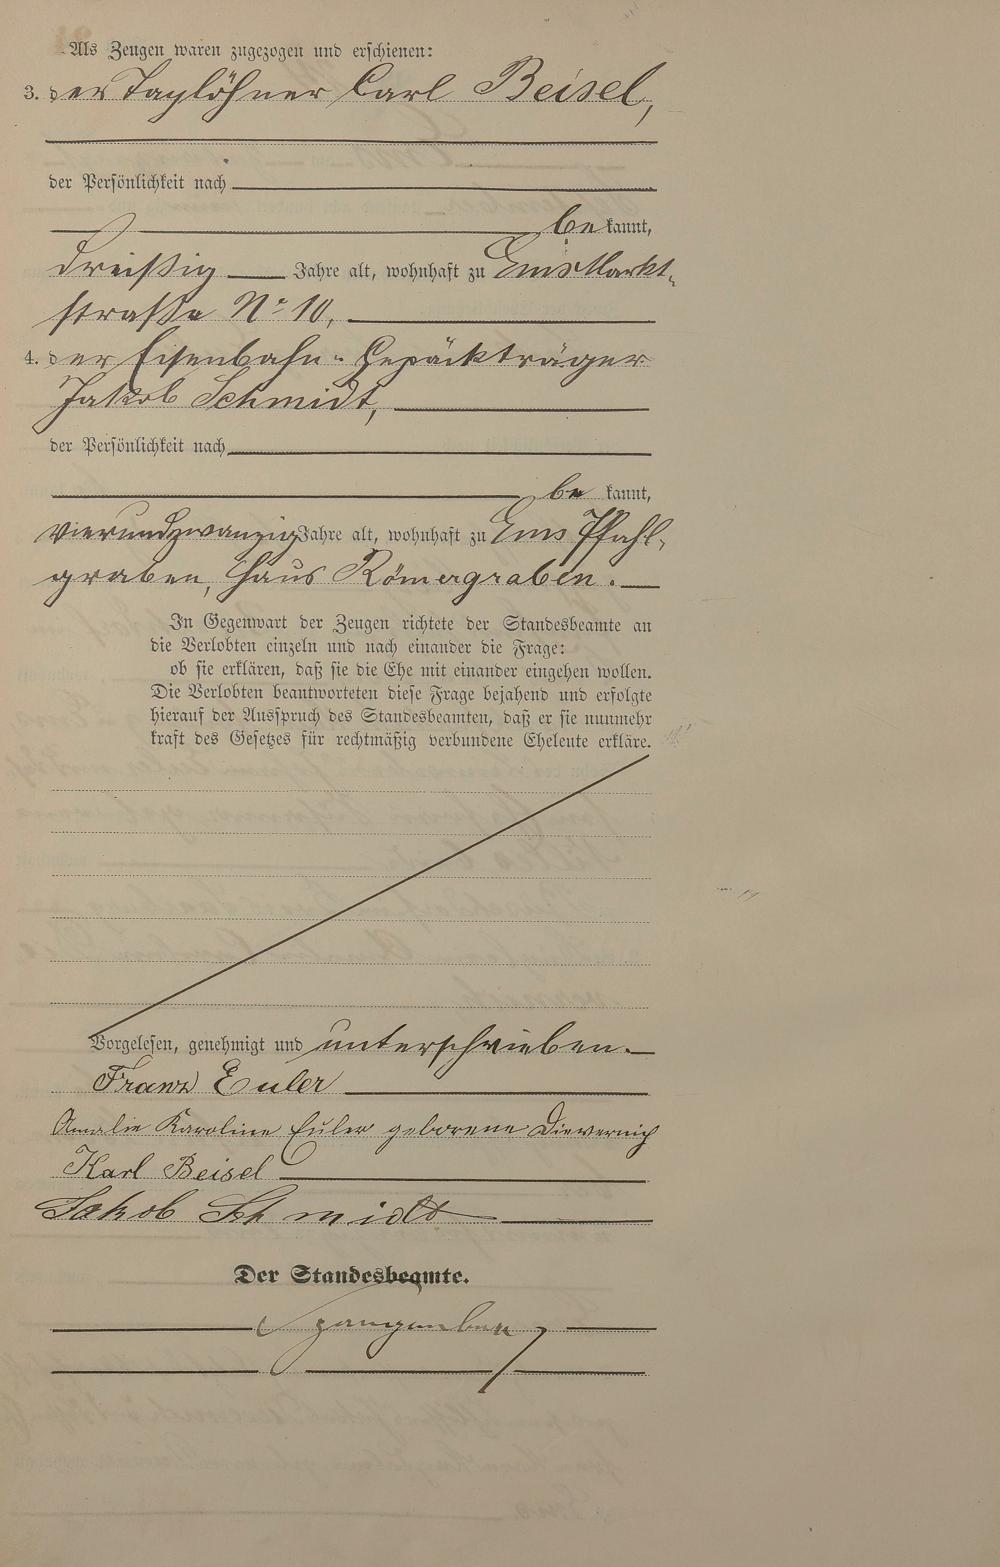 Als Zeugen waren zugezogen und erschienen:
3. der Taglöhner Carl Beisel,
der Persönlichkeit nach
bekannt,
dreißig Jahre alt, wohnhaft zu Ems Markt-
straße No 10,
4. der Eisenbahn-Gepäckträger
Jakob Schmidt,
der Persönlichkeit nach
be kannt,
vierundzwanzig Jahre alt, wohnhaft zu Ems Pfahl-
graben, Haus Römergraben.
In Gegenwart der Zeugen richtete der Standesbeamte an
die Verlobten einzeln und nach einander die Frage:
ob sie erklären, daß sie die Ehe mit einander eingehen wollen.
Die Verlobten beantworteten diese Frage bejahend und erfolgte
hierauf der Ausspruch des Standesbeamten, daß er sie nunmehr
kraft des Gesetzes für rechtmäßig verbundene Eheleute erkläre.
Vorgelesen, genehmigt und unterschrieben.
Franz Euler
Amalie Karoline Euler geborene Dievernich
Karl Beisel
Jakob Schmidt
Der Standesbeamte.
Spangenberg